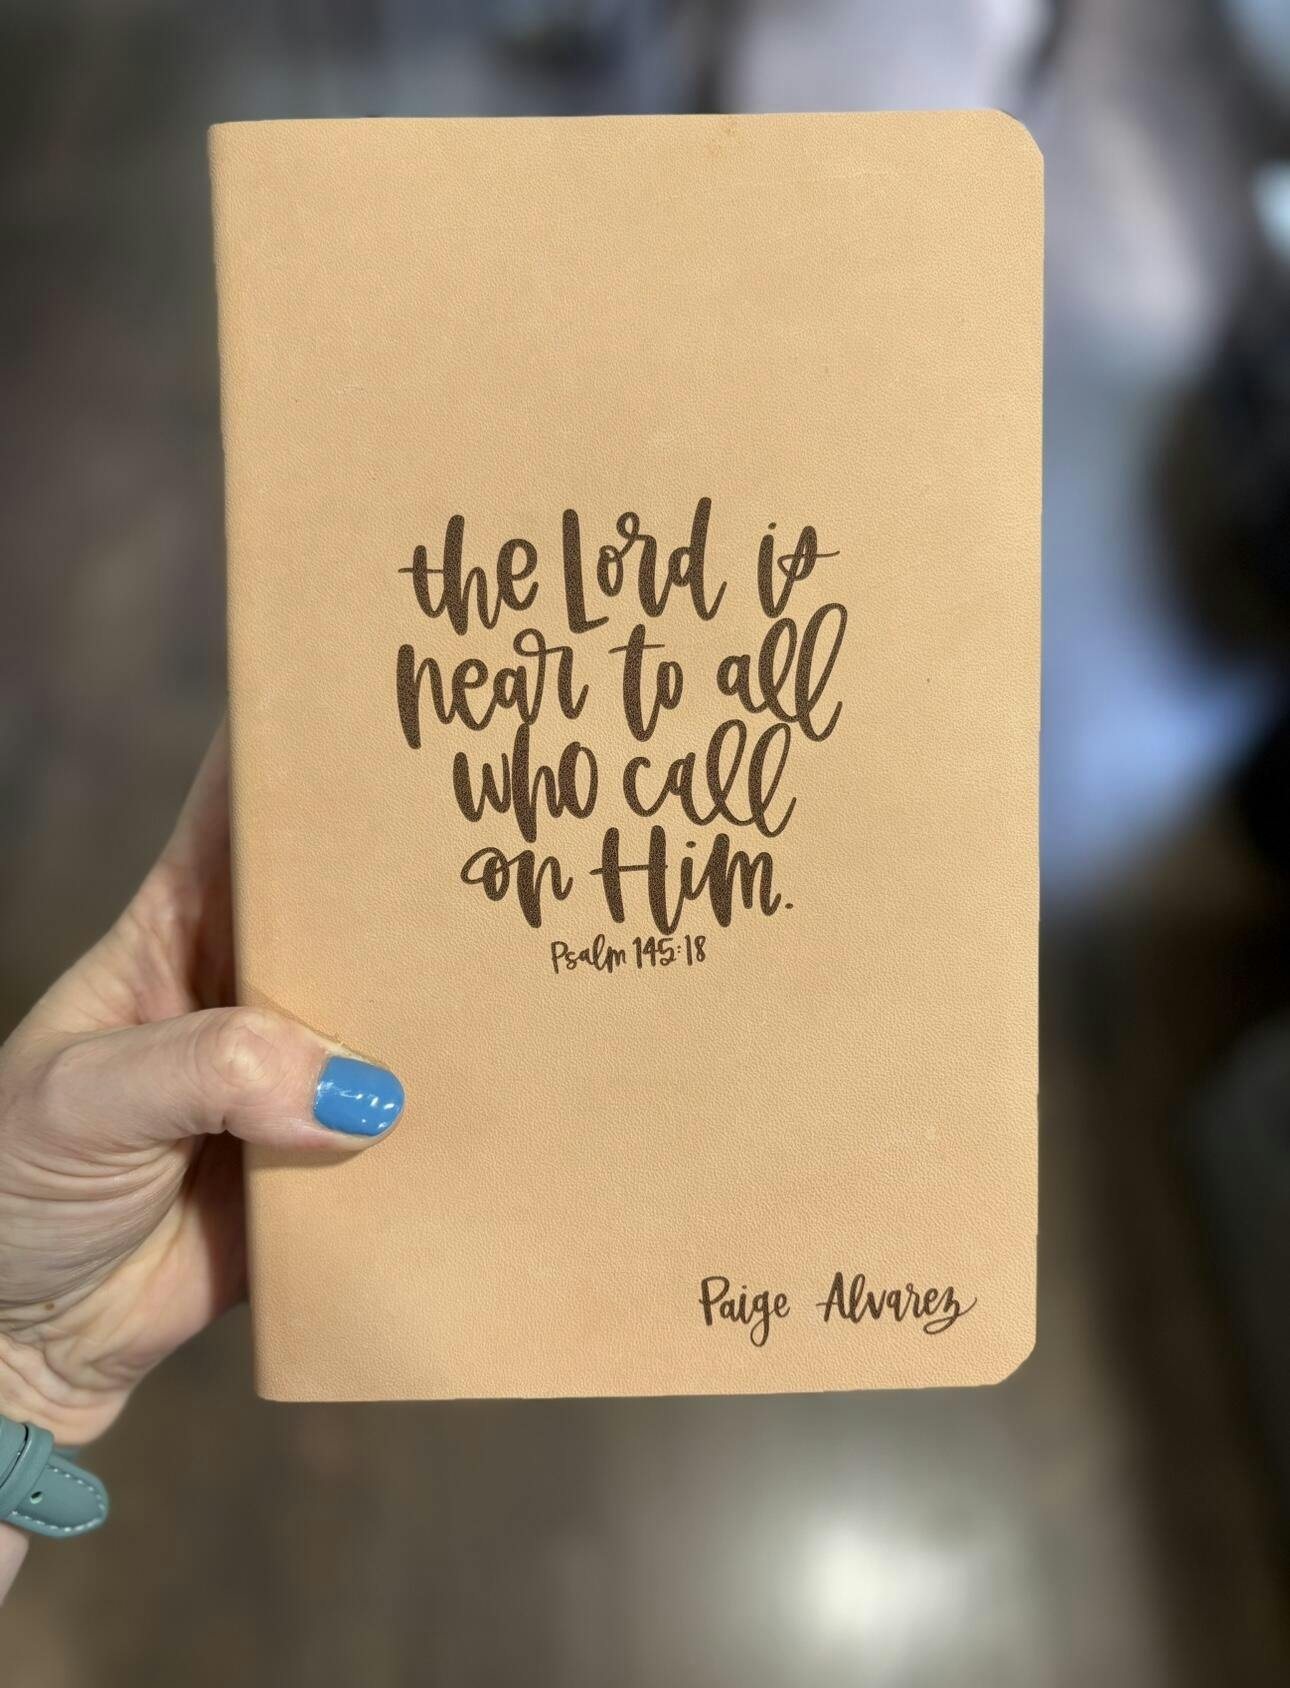 the Lord is
near to all
who call
on Him.
Psalm 145:18
Paige Alvarez